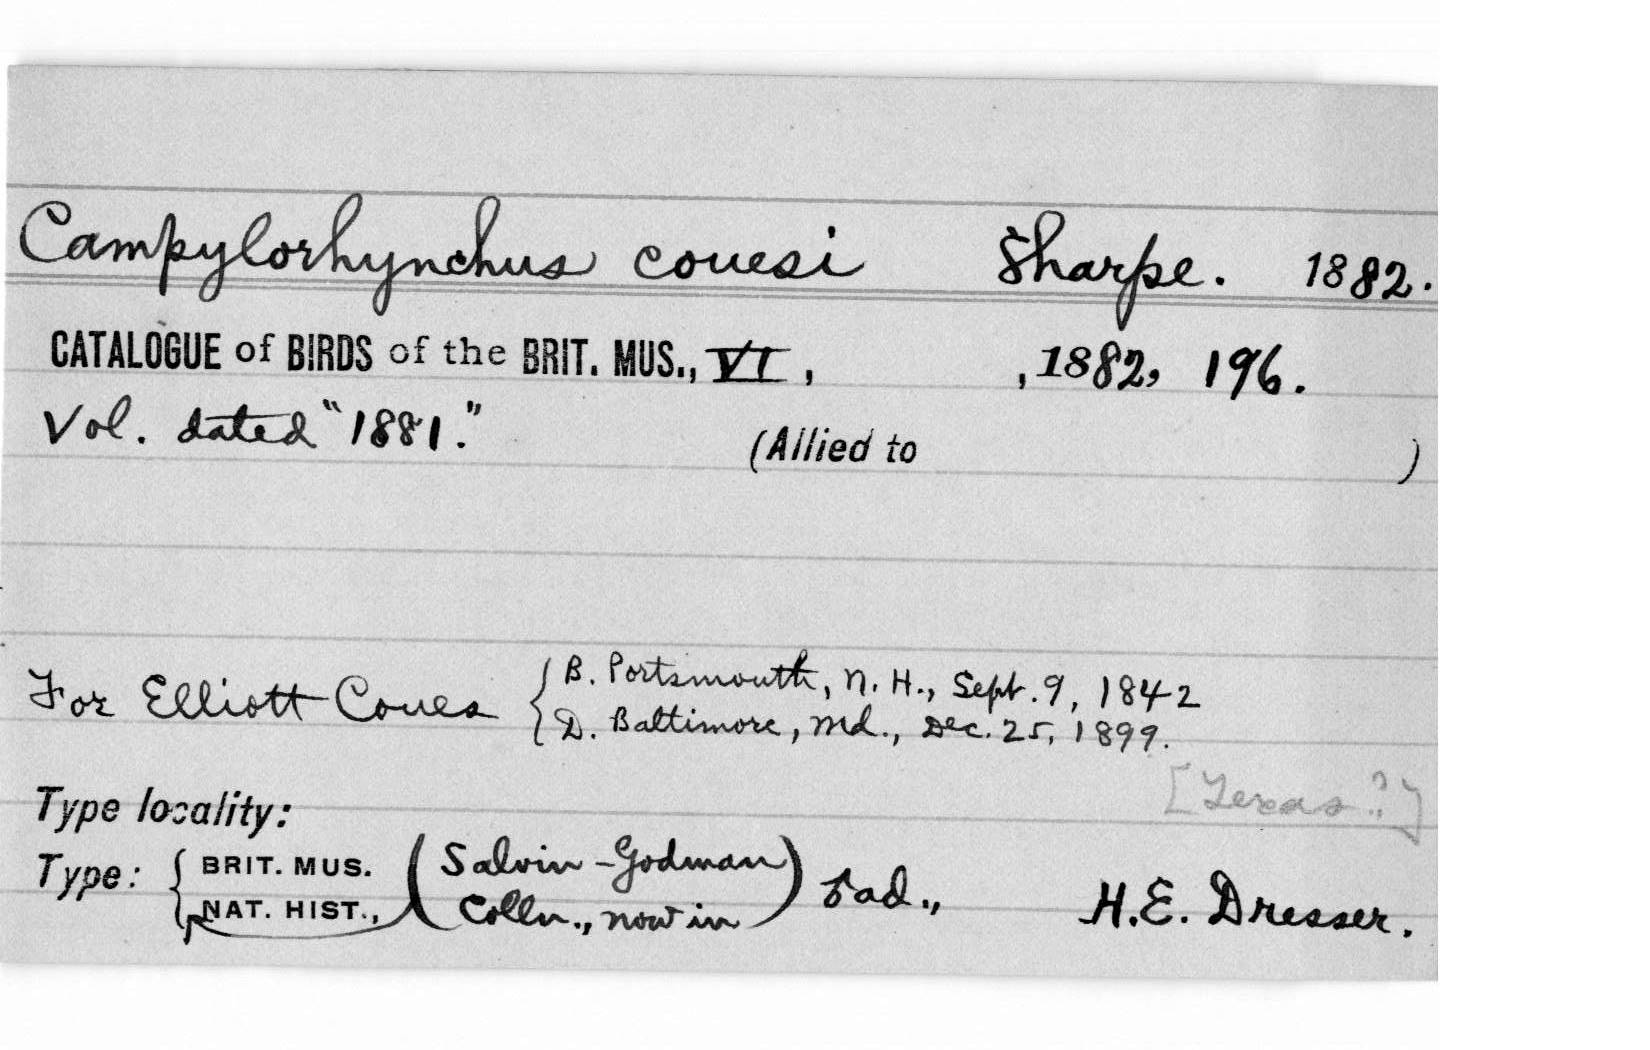 Campylorhynchus couesi Sharpe. 1882.
CATALOGUE of BIRDS of the BRIT. MUS., VI, , 1882, 196.
Vol. dated "1881."
(Allied to )
For Elliott Coues { B. Portsmouth, N. H., Sept. 9, 1842
D. Baltimore, Md., Dec. 25, 1899.
[Texas?]
Type locality:
Type: { BRIT. MUS. (Salvin-Godman) ♂ ad., H. E. Dresser.
NAT. HIST., Colln., now in